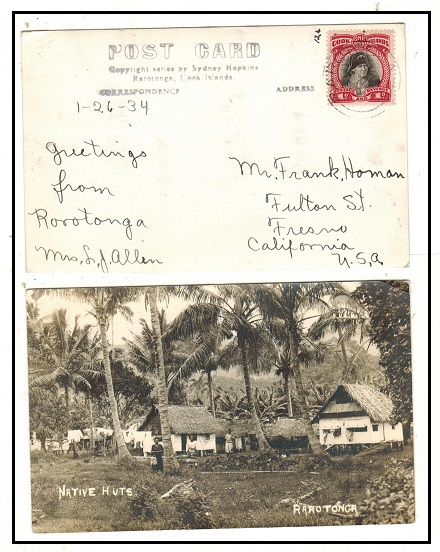 POST CARD
Copyright series by Sydney Hopkins
Rarotonga, Cook Islands.
CORRESPONDENCE
ADDRESS
COOK ISLANDS
1-26-34
Greetings
from
Rorotonga
Mrs. S. J. Allen
Mr. Frank Homan
Fulton St.
Fresno
California
U.S.A
NATIVE HUTS
RAROTONGA